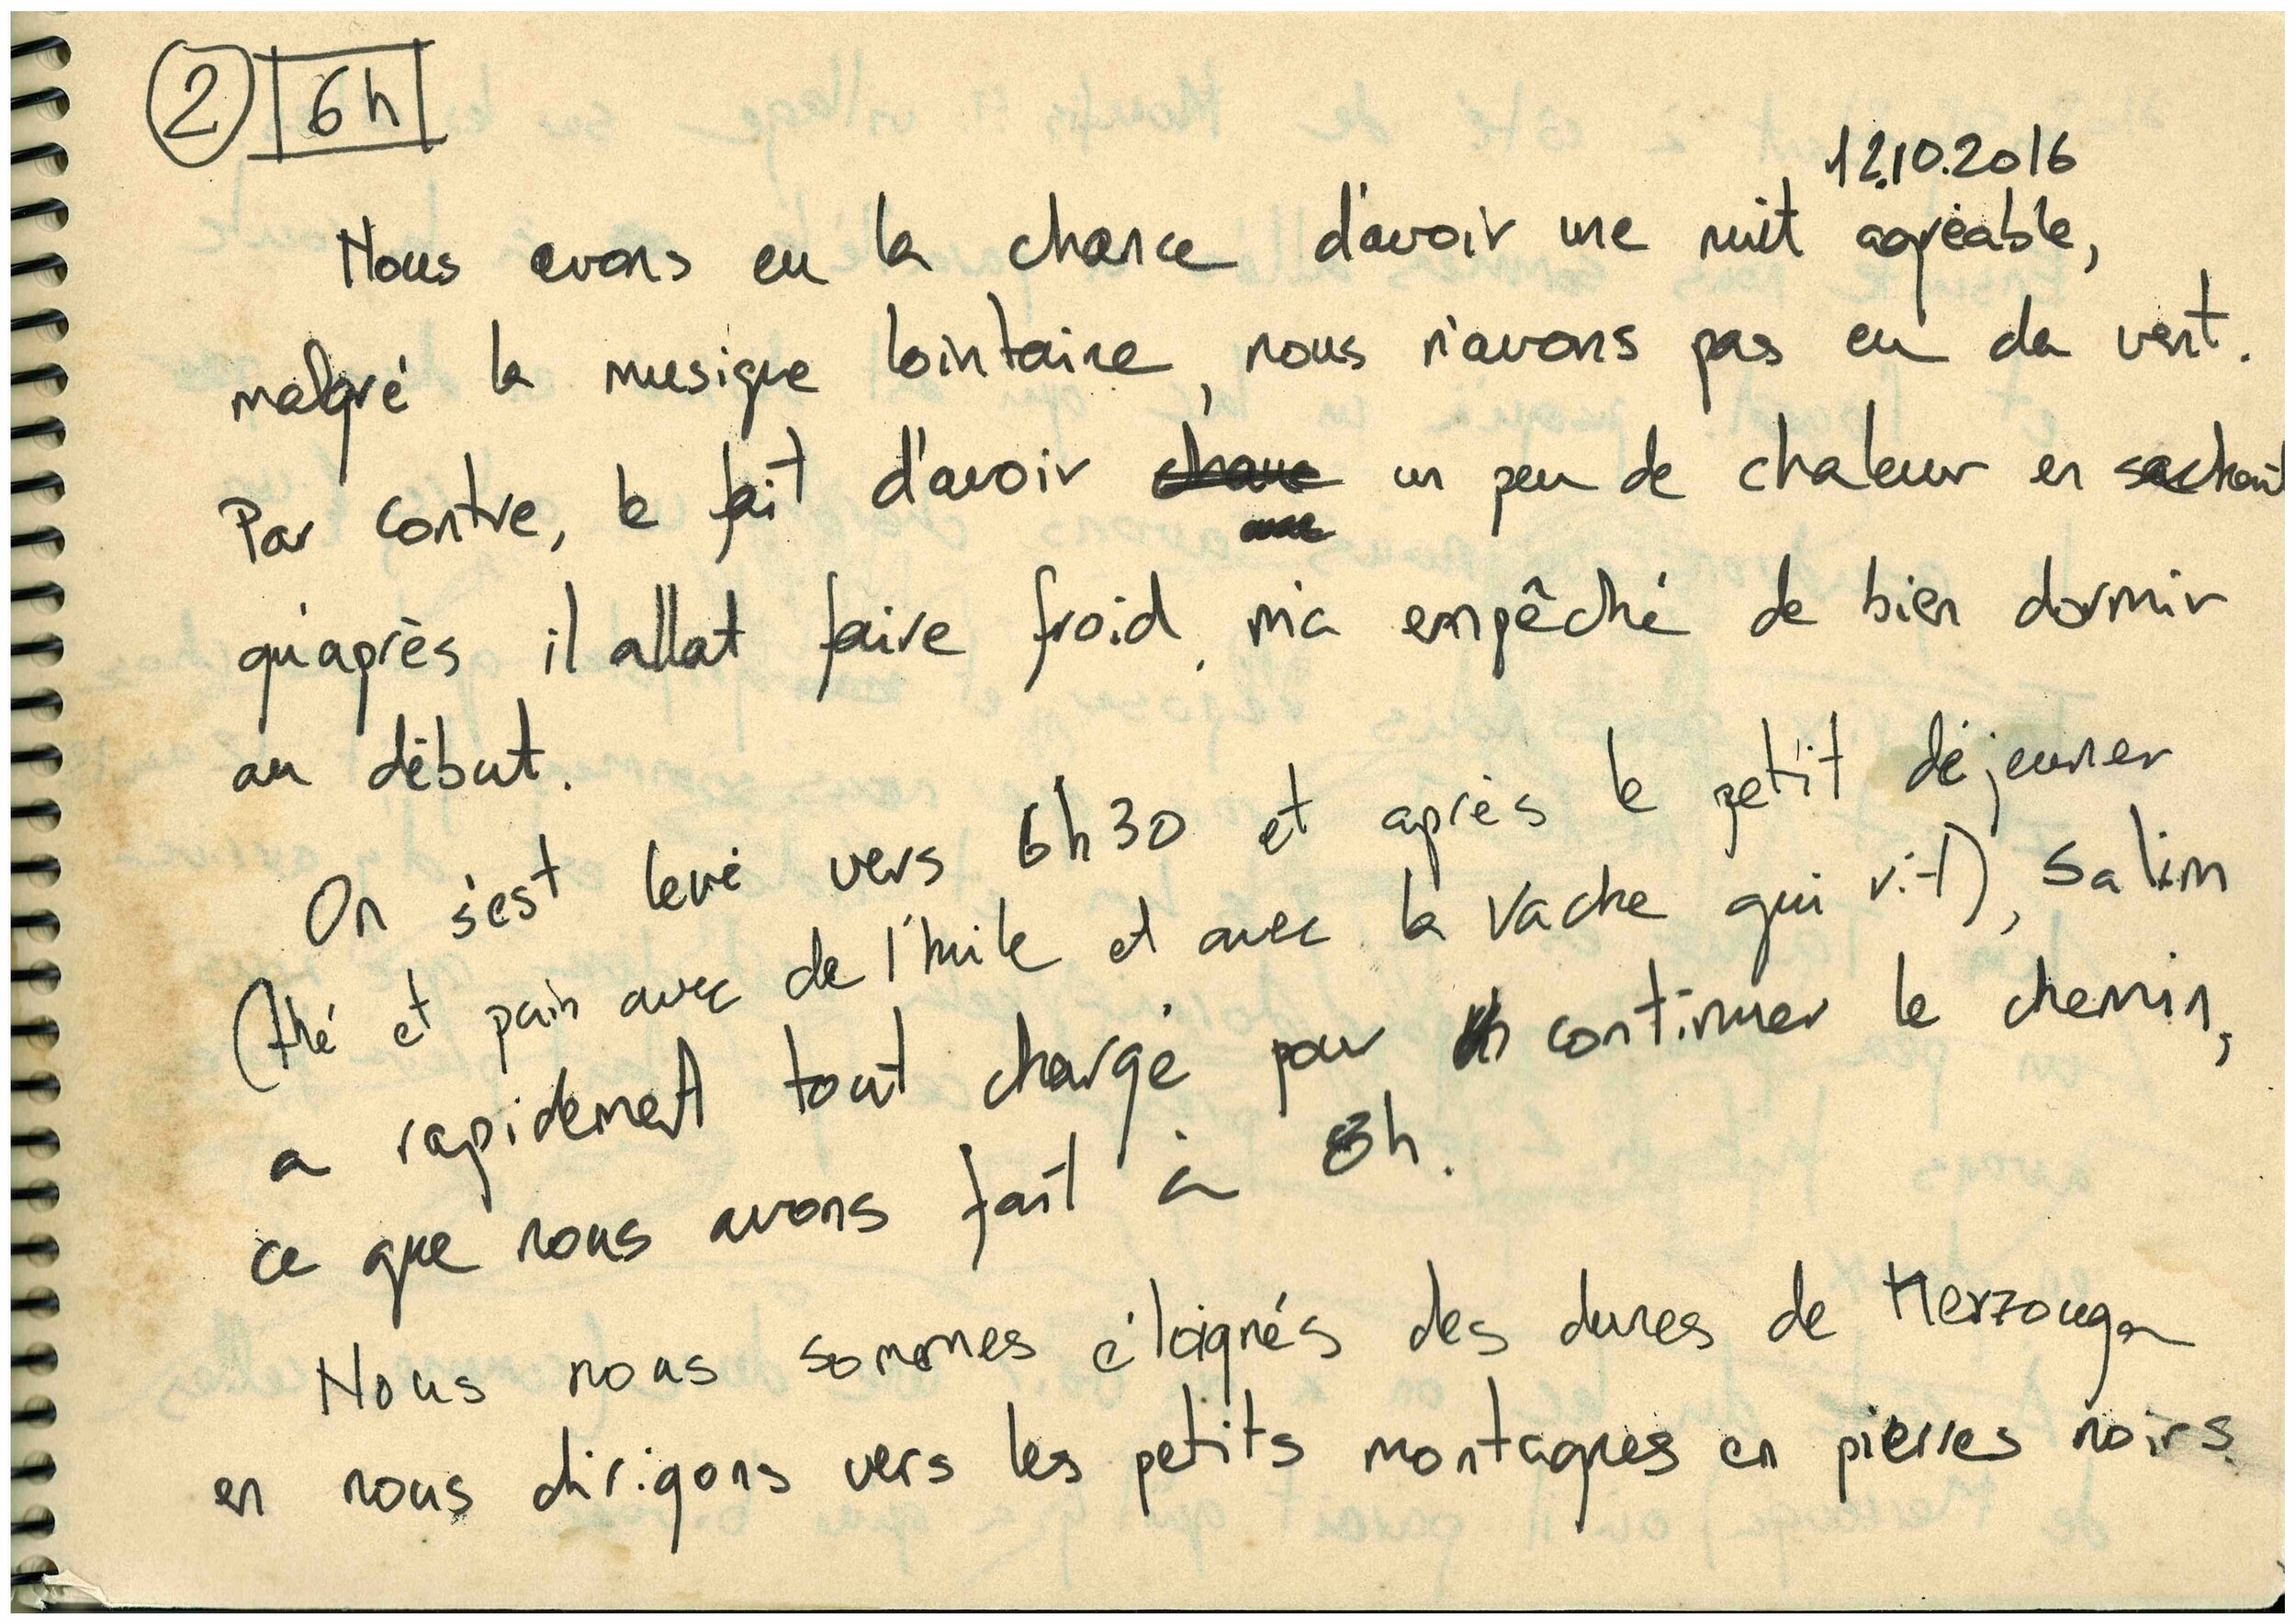 2 6h
12.10.2016
Nous avons eu la chance d'avoir une nuit agréable,
malgré la musique lointaine, nous n'avons pas eu de vent.
Par contre, le fait d'avoir un peu de chaleur en sachant
qu'après il allat faire froid, m'a empêché de bien dormir
au début.
On s'est levé vers 6h30 et après le petit déjeuner
(thé et pain avec de l'huile et avec la vache qui rit), Salim
a rapidement tout chargé pour continuer le chemin,
ce que nous avons fait à 8h.
Nous nous sommes éloignés des dunes de Merzouga
en nous dirigons vers les petits montagnes en pierres noirs.